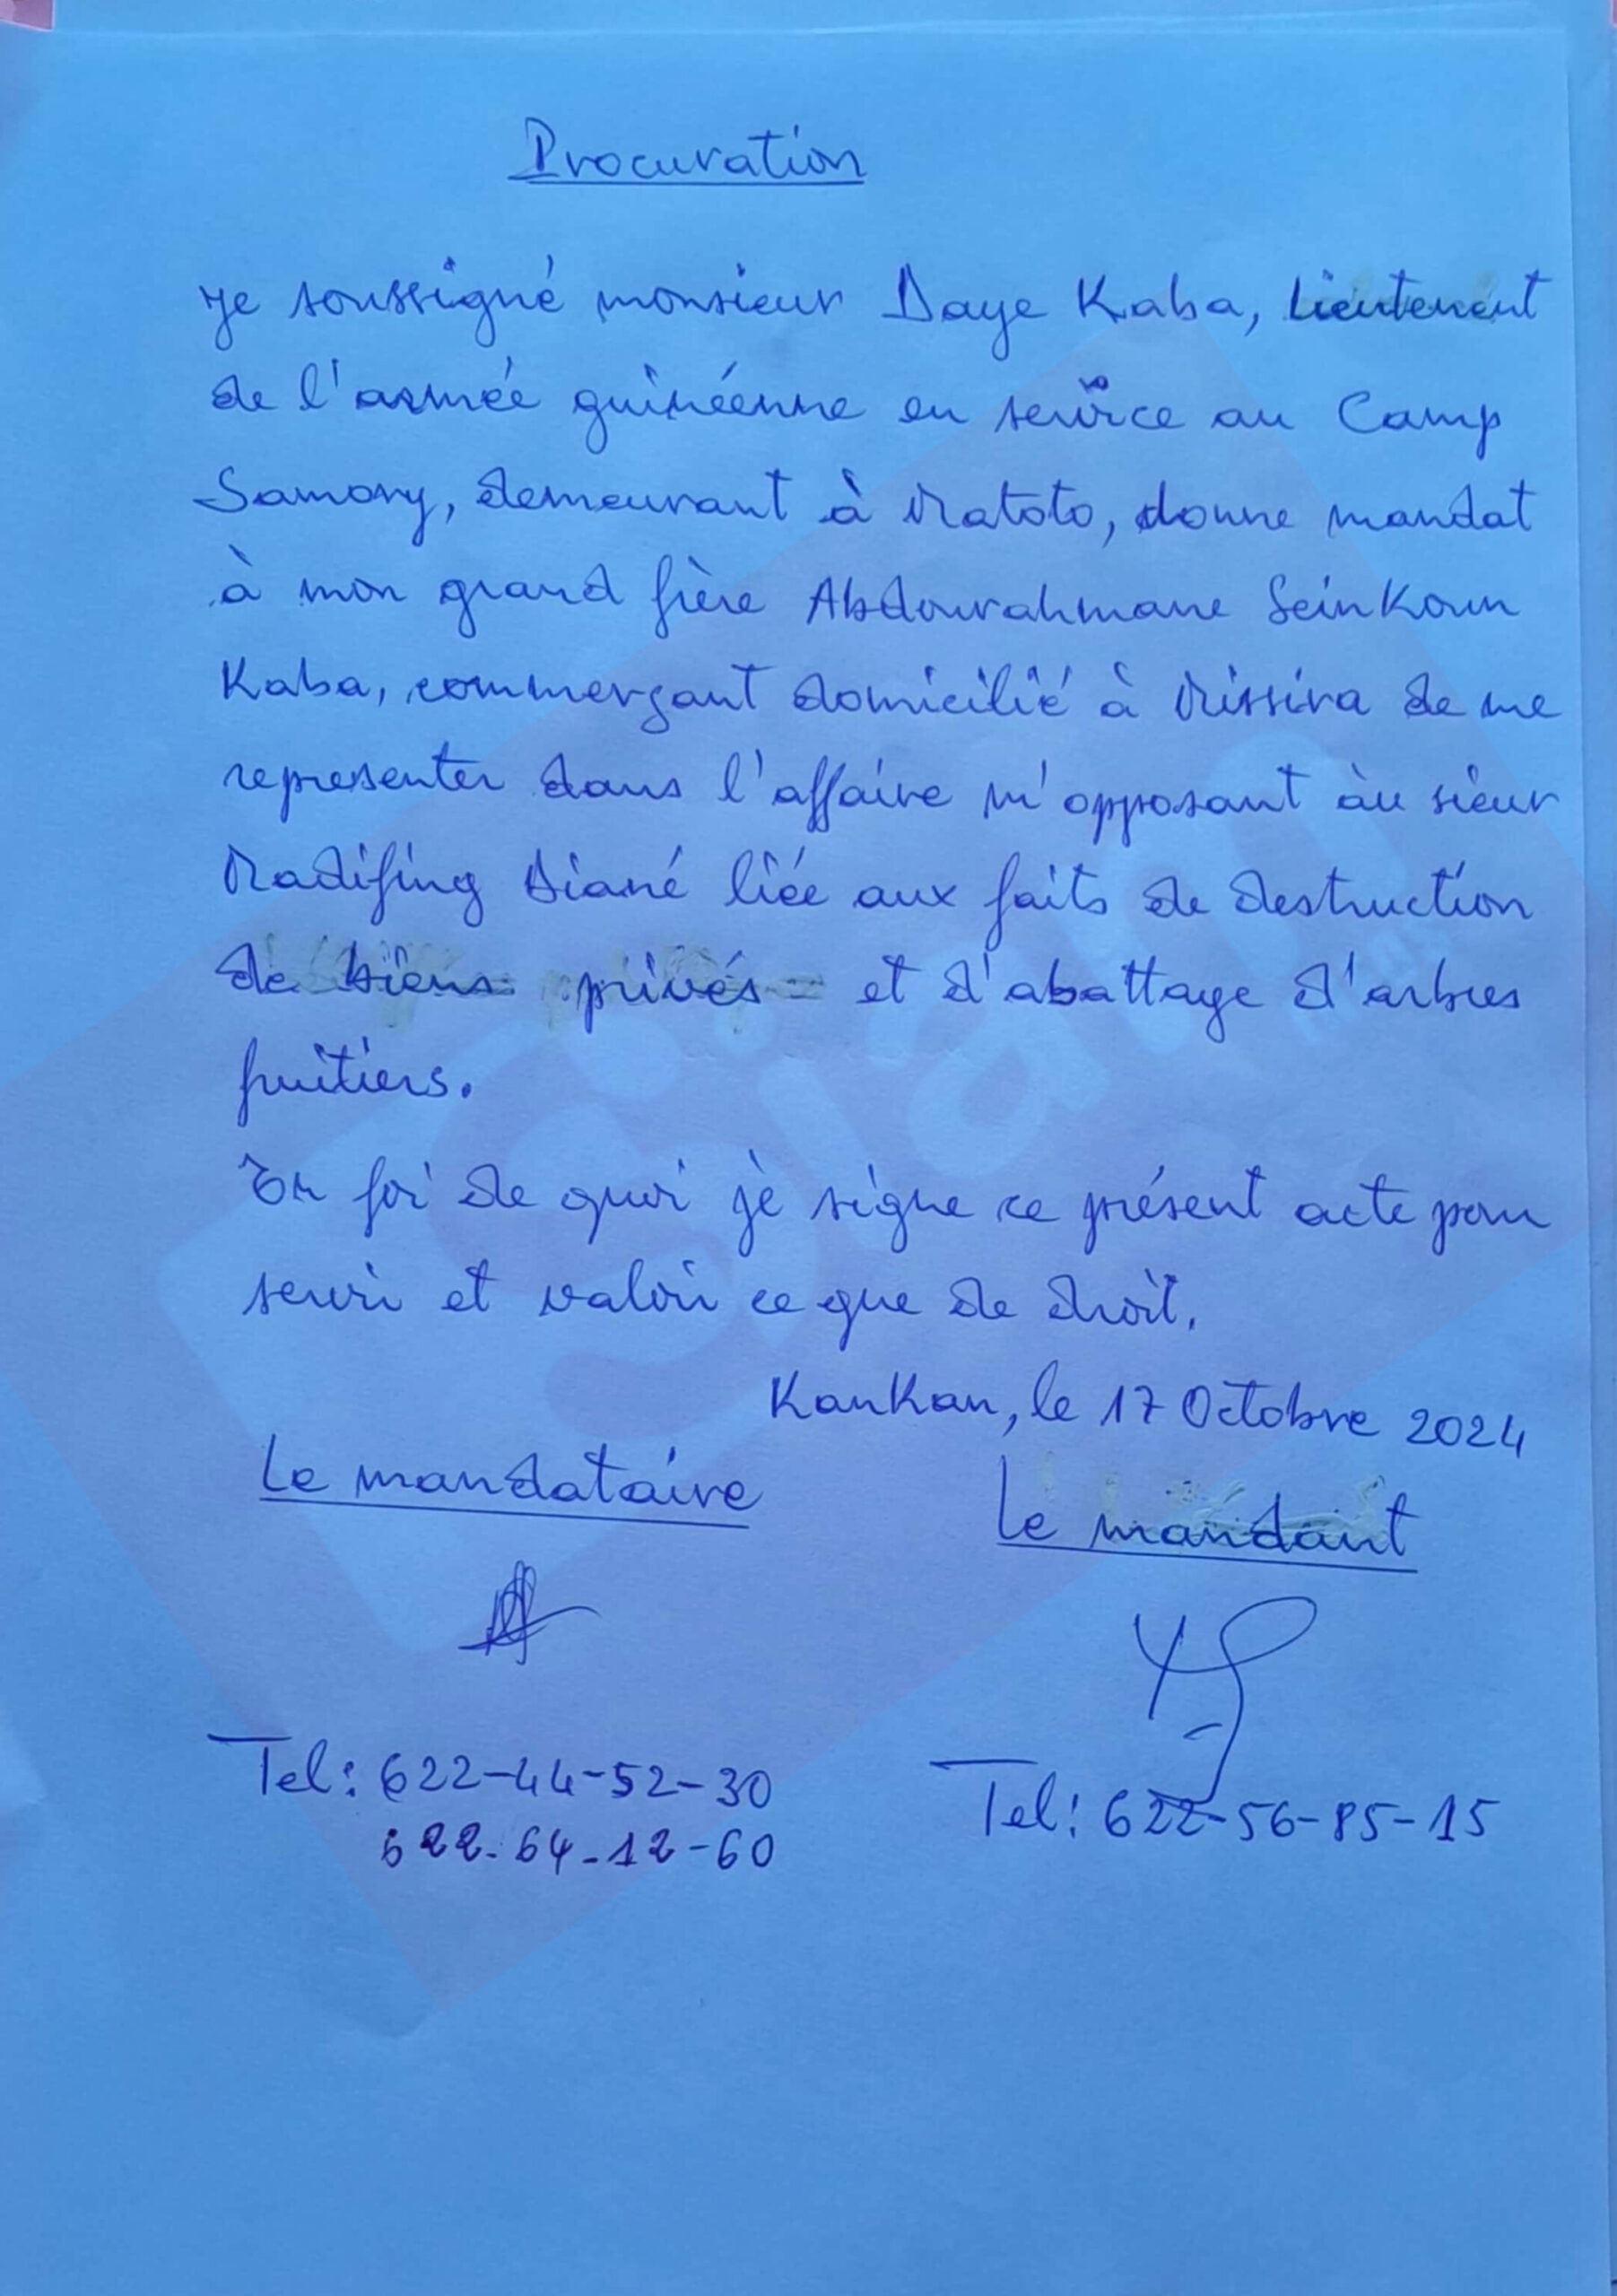 Procuration
Je soussigné monsieur Daye Kaba, Lieutenent
de l'armée guinéenne en service au Camp
Samory, demeurant à Matoto, donne mandat
à mon grand frère Abdourahmane Seinkoun
Kaba, commerçant domicilié à Missira de me
representer dans l'affaire m'opposant àu sieur
Madifing Diané liée aux faits de destruction
de biens privés - et d'abattage d'arbres
fruitiers.
En foi de quoi je signe ce présent acte pour
servir et valoir ce que de droit.
Kankan, le 17 Octobre 2024
Le mandataire
Le mandant
Tel: 622-44-52-30
622-64-12-60
Tel: 622-56-85-15